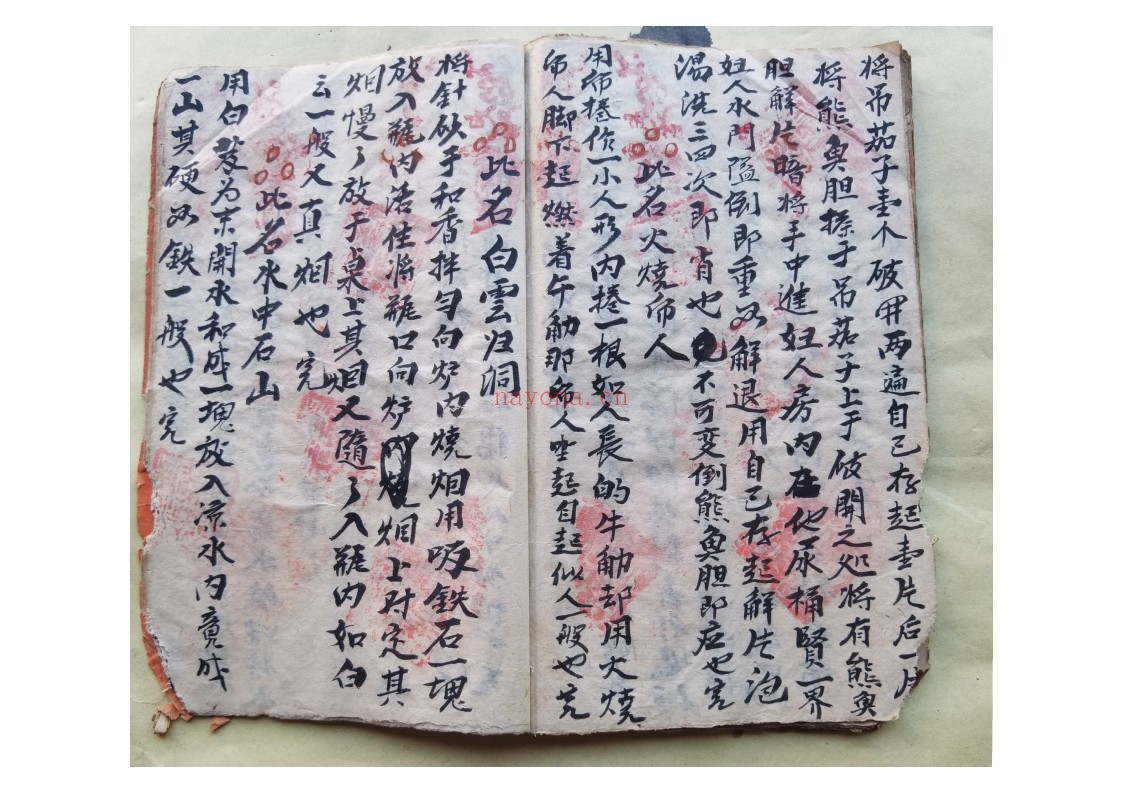 将吊茄子壹个破开两遍自己存起壹片后一片
将熊奠胆搽于吊茄子上于破開之処将有熊奠
胆解片暗将手中進妇人房内在他尿桶賢一界
妇人水門隘倒即重如解退用自己存起解片泡
湯洗三四次即肖也 不可变倒熊奠胆即症也完
此名火燒布人
用布捲作一小人形内捲一根如人長的牛觔却用火燒
布人脚下起燃着午觔那布人坐起自起似人一般也完
此名白雲归洞
将針砂于和香拌匀向炉内燒烟用吸鉄石一塊
放入瓶内活住将瓶口向炉烟上对定其
烟慢了放于桌上其烟又隨了入瓶内如白
云一般又真烟也完
此名水中石山
用白芨为末開水和成一塊放入凉水内竟成
一山其硬如鉄一般也完
nayona.cn